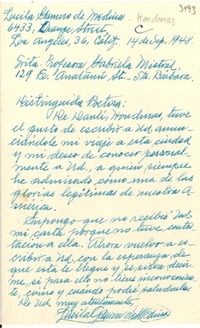 Lucila Gamero de Medina
Honduras
3193
6433, Orange, Street
C
Los Angeles, 36, Calif. 14 de Sep. 1948.
Srita. Profesora Gabriela Mistral.
129 E. Anapamú St. - Sta. Bárbara.
Distinguida Poetisa:
De Danlí, Honduras, tuve
el gusto de escribir a Ud. anun-
ciándole mi viaje a esta ciudad
y mi deseo de conocer personal-
mente a Ud., a quien siempre
he admirado como una de las
glorias legítimas de nuestra A
mérica.
Supongo que no recibió Ud.
mi carta porque no tuve contes-
tación a ella. Ahora vuelvo a es-
cribir a Ud. con la esperanza de
que esta le llegue y se sirva decir-
me, si para ello no tiene inconvenien-
te, como y cuando podré saludarla.
De Ud. muy atentamente,
Lucila Gamero de Medina